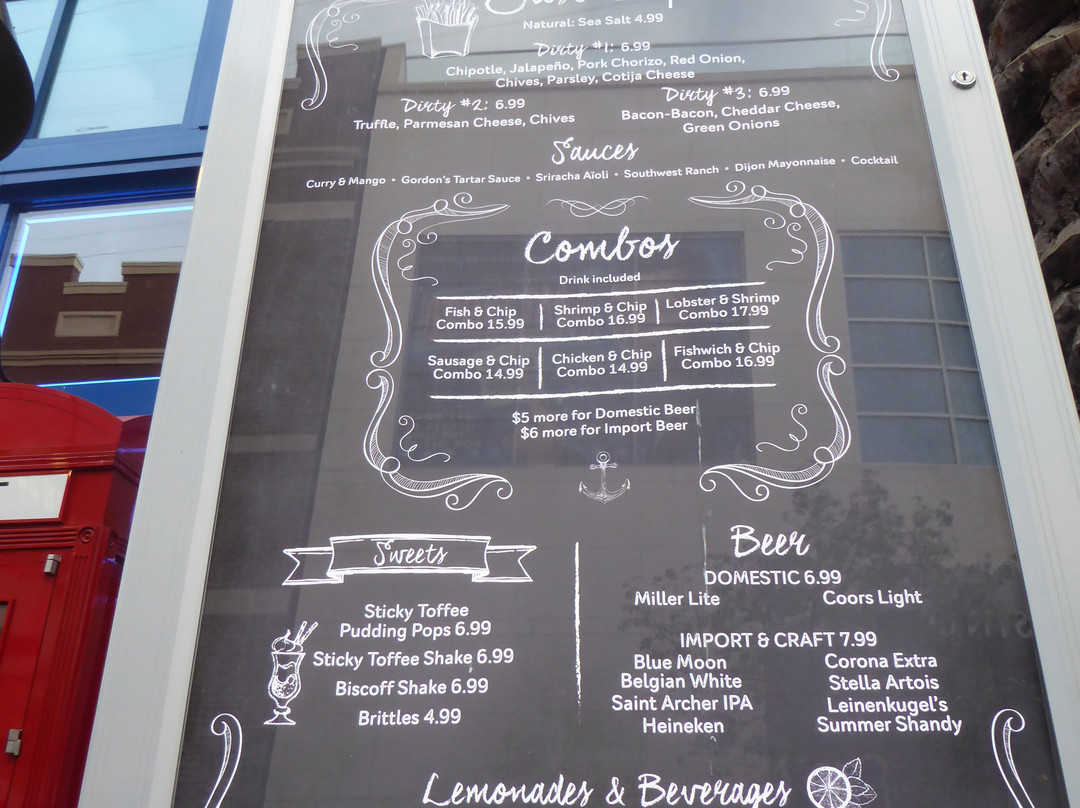 Natural: Sea Salt 4.99
Dirty #1: 6.99
Chipotle, Jalapeño, Pork Chorizo, Red Onion,
Chives, Parsley, Cotija Cheese
Dirty #2: 6.99
Truffle, Parmesan Cheese, Chives
Dirty #3: 6.99
Bacon-Bacon, Cheddar Cheese,
Green Onions
Sauces
Curry & Mango • Gordon's Tartar Sauce • Sriracha Aïoli • Southwest Ranch • Dijon Mayonnaise • Cocktail
Combos
Drink included
Fish & Chip
Combo 15.99
Shrimp & Chip
Combo 16.99
Lobster & Shrimp
Combo 17.99
Sausage & Chip
Combo 14.99
Chicken & Chip
Combo 14.99
Fishwich & Chip
Combo 16.99
$5 more for Domestic Beer
$6 more for Import Beer
Sweets
Sticky Toffee
Pudding Pops 6.99
Sticky Toffee Shake 6.99
Biscoff Shake 6.99
Brittles 4.99
Beer
DOMESTIC 6.99
Miller Lite
Coors Light
IMPORT & CRAFT 7.99
Blue Moon
Belgian White
Saint Archer IPA
Heineken
Corona Extra
Stella Artois
Leinenkugel's
Summer Shandy
Lemonades & Beverages